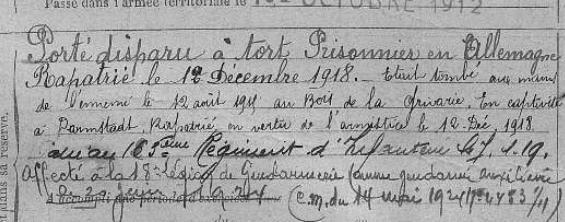 Passé dans l'armée territoriale le 1er OCTOBRE 1912
Porté disparu à tort Prisonnier en Allemagne
Rapatrié le 12 Décembre 1918. - Etait tombé aux mains
de l'ennemi le 12 août 191 au Bois de la Grurie. En captivité
à Darmstadt, Rapatrié en vertu de l'armistice le 12 Déc. 1918.
au 163ème Régiment d'Infanterie 1.19.
Affecté à la 18e légion de Gendarmerie comme gendarme auxiliaire
le 20 juin 1924 (C.M. du 14 mai 1924 N° 4483 /11)
A accompli une période d'exercices
et dans sa réserve.